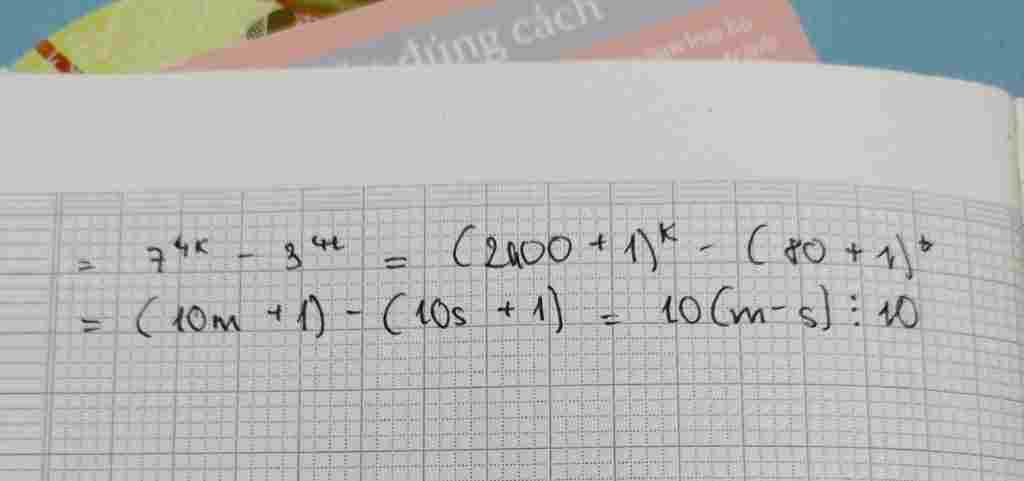 đúng cách
= 7^{4k} - 3^{4t} = (2400 + 1)^k - (80 + 1)^t
= (10m + 1) - (10s + 1) = 10(m - s) ⋮ 10